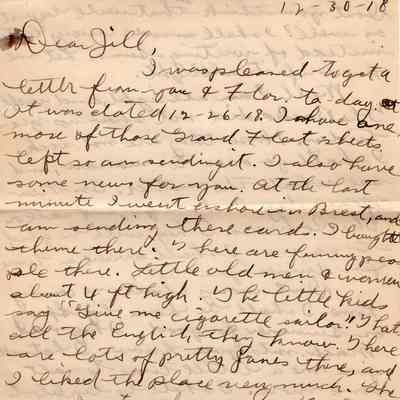 12-30-18
Dear Jill,
I was pleased to get a
letter from you & Flor. to-day.
It was dated 12-26-18. I have one
more of those Grand Fleet sheets
left so am sending it. I also have
some news for you. At the last
minute I went ashore in Brest, and
am sending these card. I bought
theme there. There are funny peo
ple there. Little old men & women
about 4 ft high. The little kids
say "Give me cigarette sailor." That
all the English they know. There
are lots of pretty Janes there, and
I liked the place very much. The